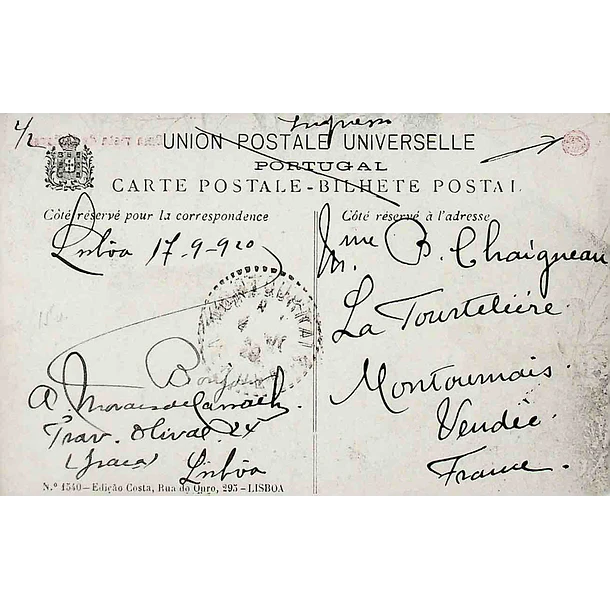 Ingresso
UNION POSTALE UNIVERSELLE
PORTUGAL
CARTE POSTALE-BILHETE POSTAL
Côté réservé pour la correspondence
Lisbôa 17-9-920
Bonjour
A Moraes de Carvalh
Trav. Olival 24
(Graca)
Lisbôa
Côté réservé à l'adresse
Mme B. Chaigneau
La Tourtelière.
Montournais.
Vendée.
France.
MONTOURNAIS
N.º 1540-Edição Costa, Rua do Ouro, 295-LISBOA